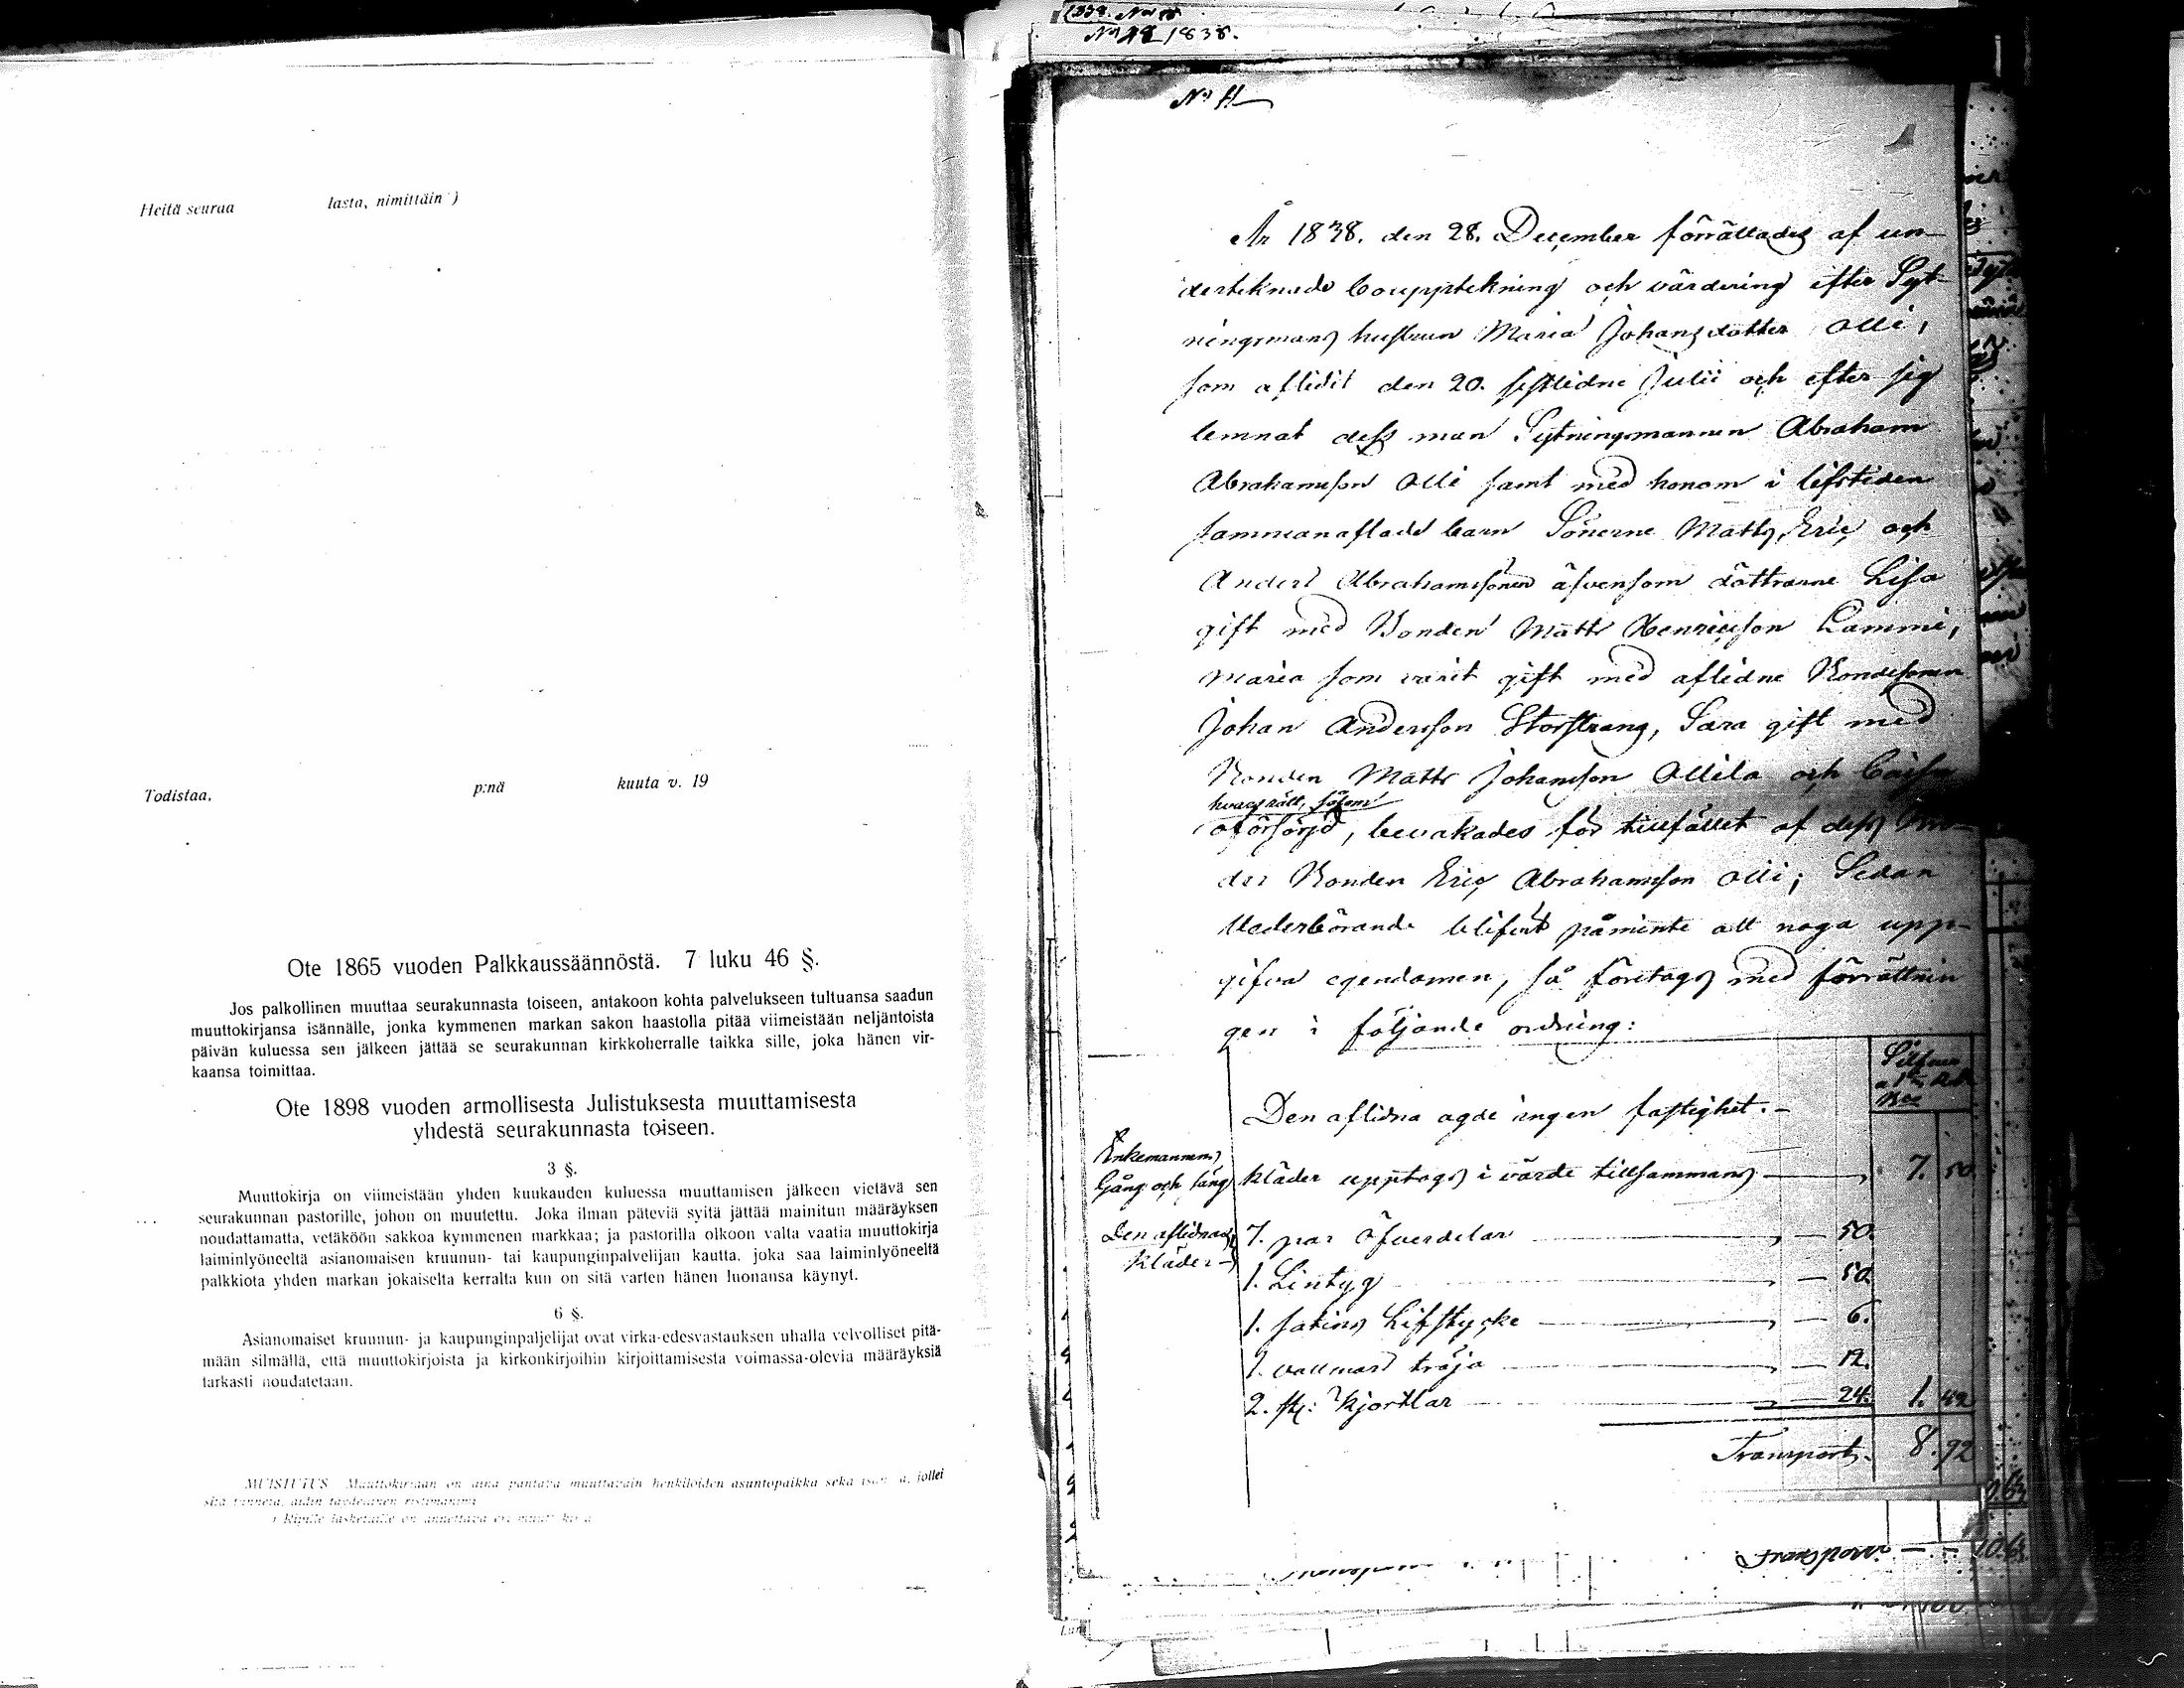 Heitä seuraa lasta, nimittäin*)
Todistaa, p:nä kuuta v. 19
Ote 1865 vuoden Palkkaussäännöstä. 7 luku 46 §.
Jos palkollinen muuttaa seurakunnasta toiseen, antakoon kohta palvelukseen tultuansa saadun
muuttokirjansa isännälle, jonka kymmenen markan sakon haastolla pitää viimeistään neljäntoista
päivän kuluessa sen jälkeen jättää se seurakunnan kirkkoherralle taikka sille, joka hänen vir-
kaansa toimittaa.
Ote 1898 vuoden armollisesta Julistuksesta muuttamisesta
yhdestä seurakunnasta toiseen.
3 §.
Muuttokirja on viimeistään yhden kuukauden kuluessa muuttamisen jälkeen vietävä sen
seurakunnan pastorille, johon on muutettu. Joka ilman päteviä syitä jättää mainitun määräyksen
noudattamatta, vetäköön sakkoa kymmenen markkaa; ja pastorilla olkoon valta vaatia muuttokirja
laiminlyöneeltä asianomaisen kruunun- tai kaupunginpalvelijan kautta, joka saa laiminlyöneeltä
palkkiota yhden markan jokaiselta kerralta kun on sitä varten hänen luonansa käynyt.
6 §.
Asianomaiset kruunun- ja kaupunginpaljelijat ovat virka-edesvastauksen uhalla velvolliset pitä-
mään silmällä, että muuttokirjoista ja kirkonkirjoihin kirjoittamisesta voimassa-olevia määräyksiä
tarkasti noudatetaan.
MUISTUTUS Muuttokirjaan on aina pantava muuttavain henkilöiden asuntopaikka sekä jollei
1838.
No 11
År 1838. den 28. December förrättades af un-
dertecknade bouppteckning och värdering efter Syt-
ningsmans hustrun Maria Johansdotter Olli,
som aflidit den 20. sistlidne Julii och efter sig
lemnat dess man Sytningsmannen Abraham
Abrahamsson Olli samt med honom i lifstiden
sammanaflade barn Sönerne Matts, Eric och
Anders Abrahamssöner äfvensom döttrarne Lisa
gift med Bonden Matts Henricsson Lammi,
Maria som varit gift med aflidne Bondesonen
Johan Andersson Storstrang, Sara gift med
Bonden Matts Johansson Ollila och Caisa
hvars rätt, såsom
oförsörjd, bevakades för tillfället af dess Bro-
der Bonden Eric Abrahamsson Olli; Sedan
Vederbörande blifvit påminte att noga upp-
gifva egendomen, så företogs med förrättnin
gen i följande ordning:
Silfver
Den aflidna ägde ingen fastighet. -
Enkemannens
Gång och säng kläder upptogs i värde tillsammans 7. 50
Den aflidnas 7. par Öfverdelar 50.
Kläder 1. Lintyg 50.
1. satins Lifstycke 6.
1. vallmars tröja 12.
2. st: Kjortlar 24. 1. 42
Transport. 8. 92